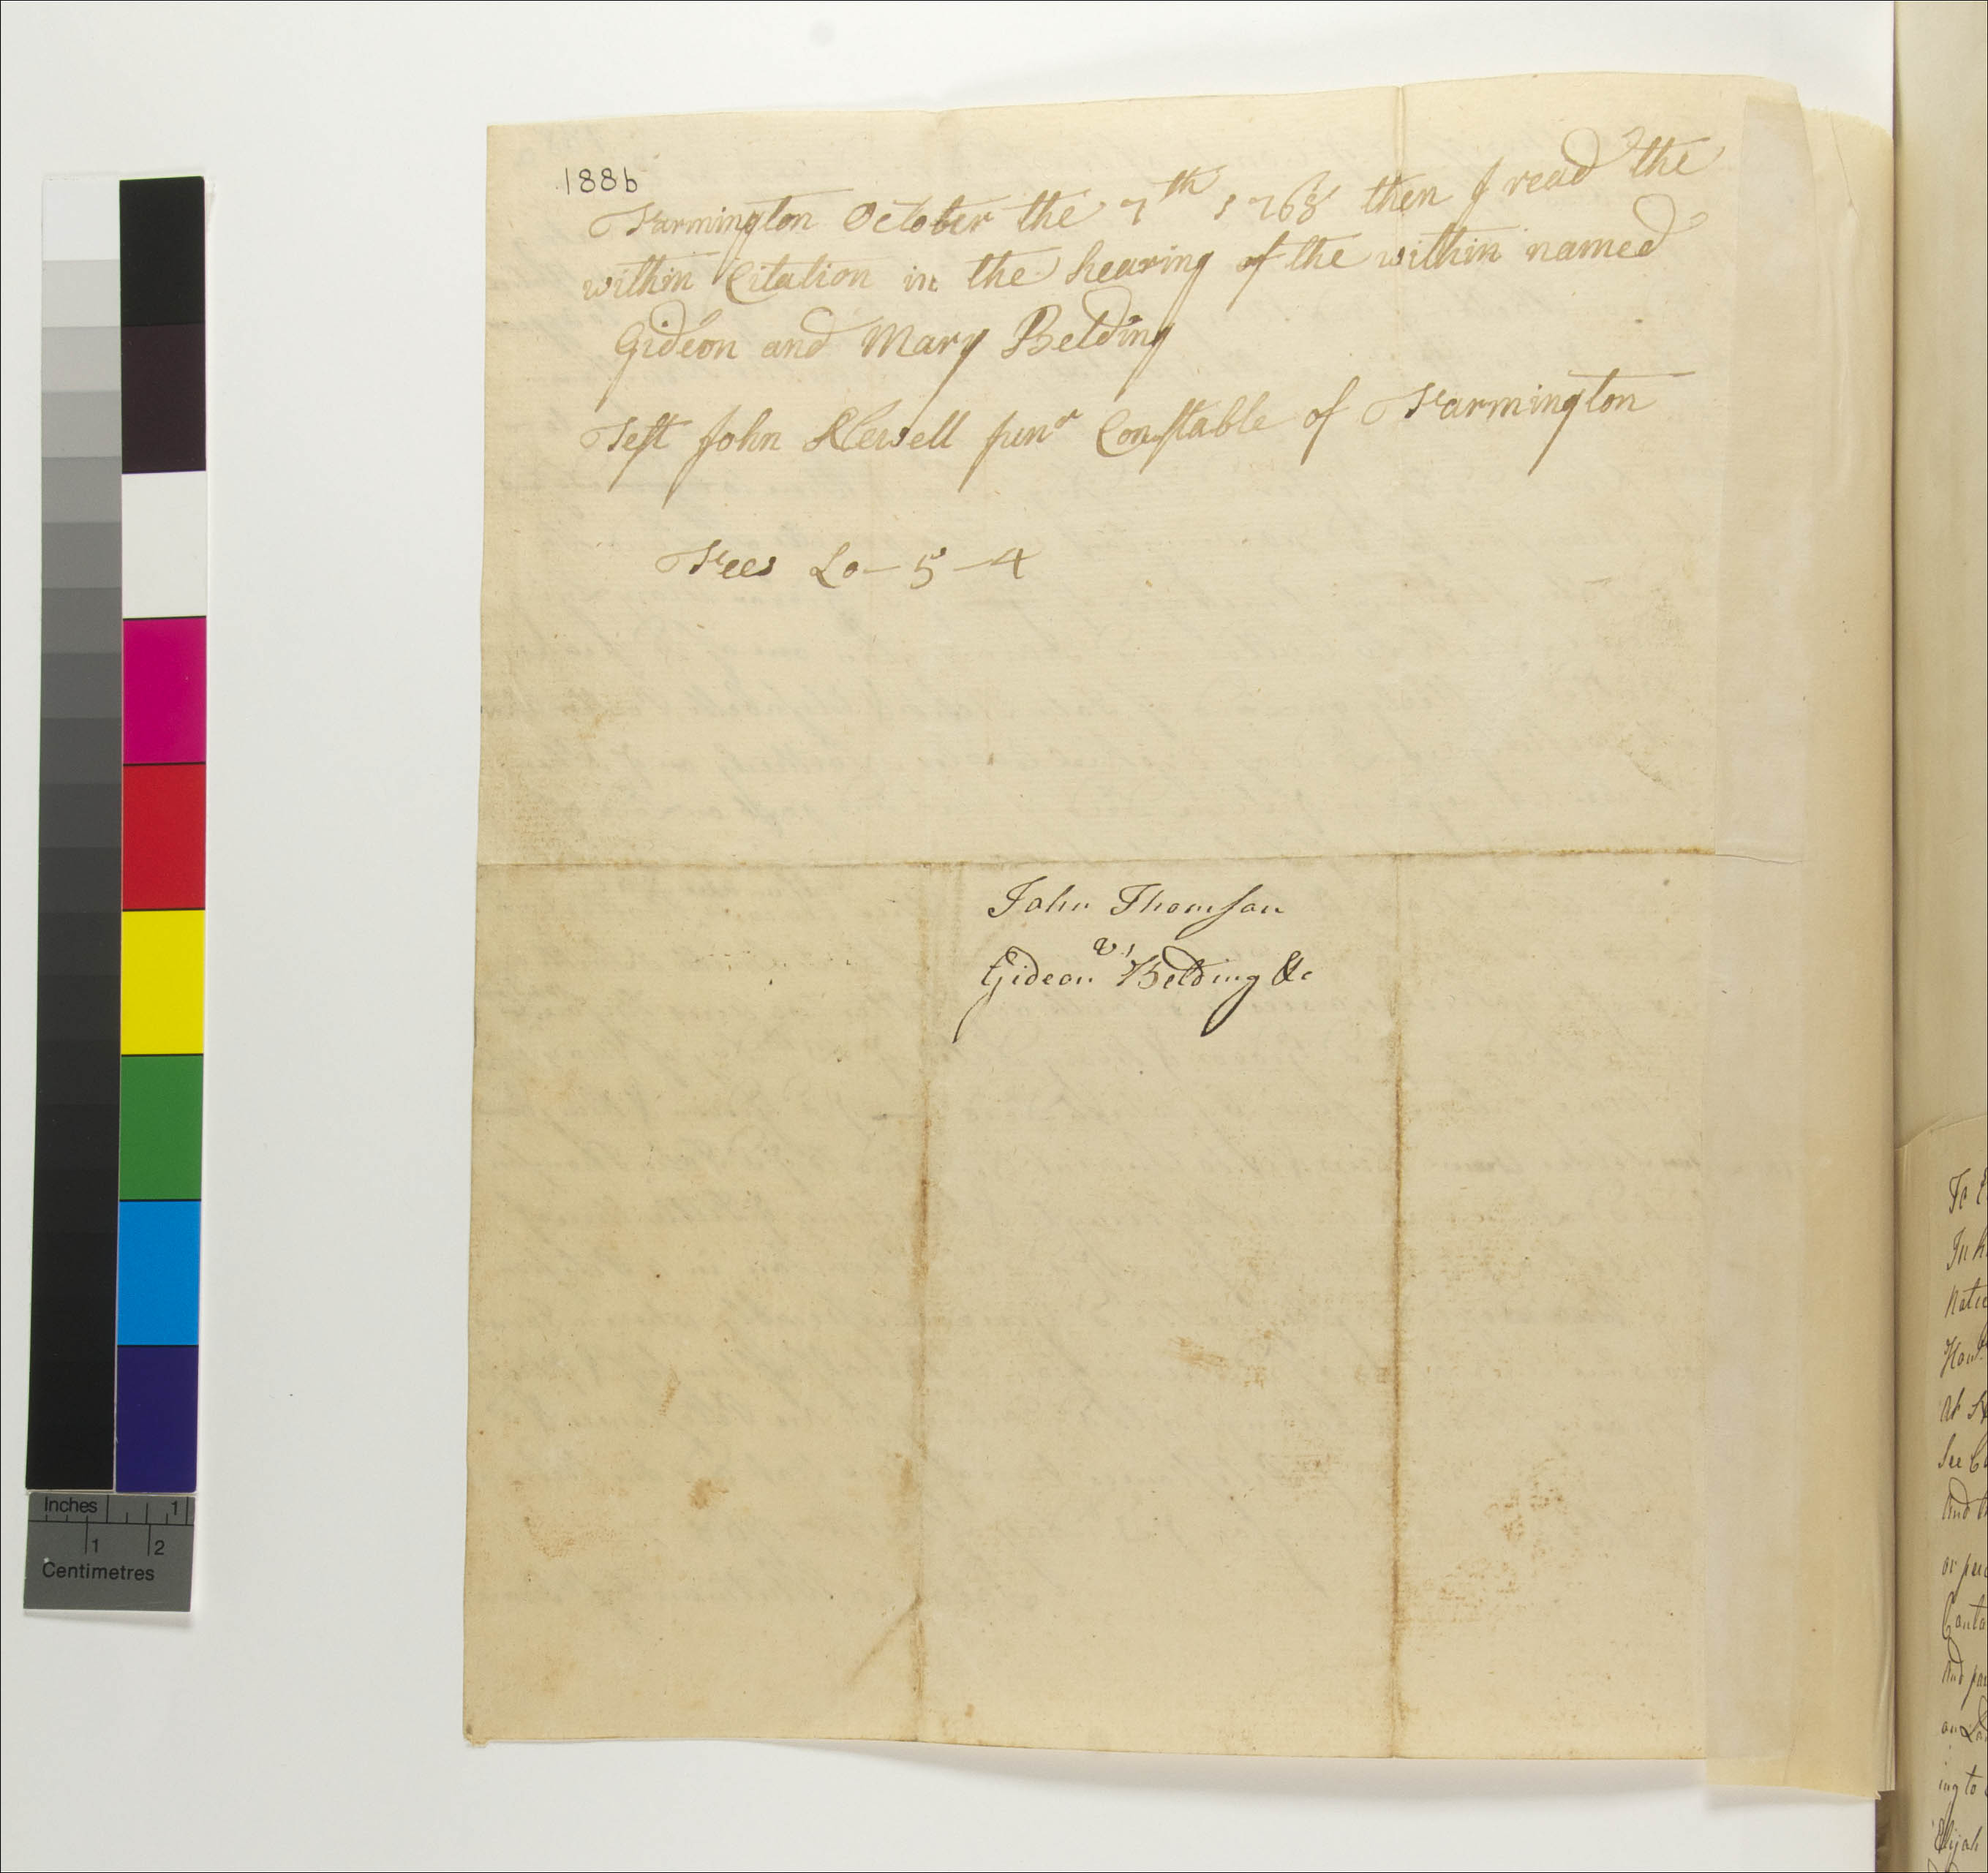 188b
Farmington October the 7th 1768 then I read the
within Citation in the hearing of the within named
Gideon and Mary Belding
Test John Newell junr Constable of Farmington
Fees £0-5-4
John Thomson
vs
Gideon Belding &c
Inches 1
1 2
Centimetres